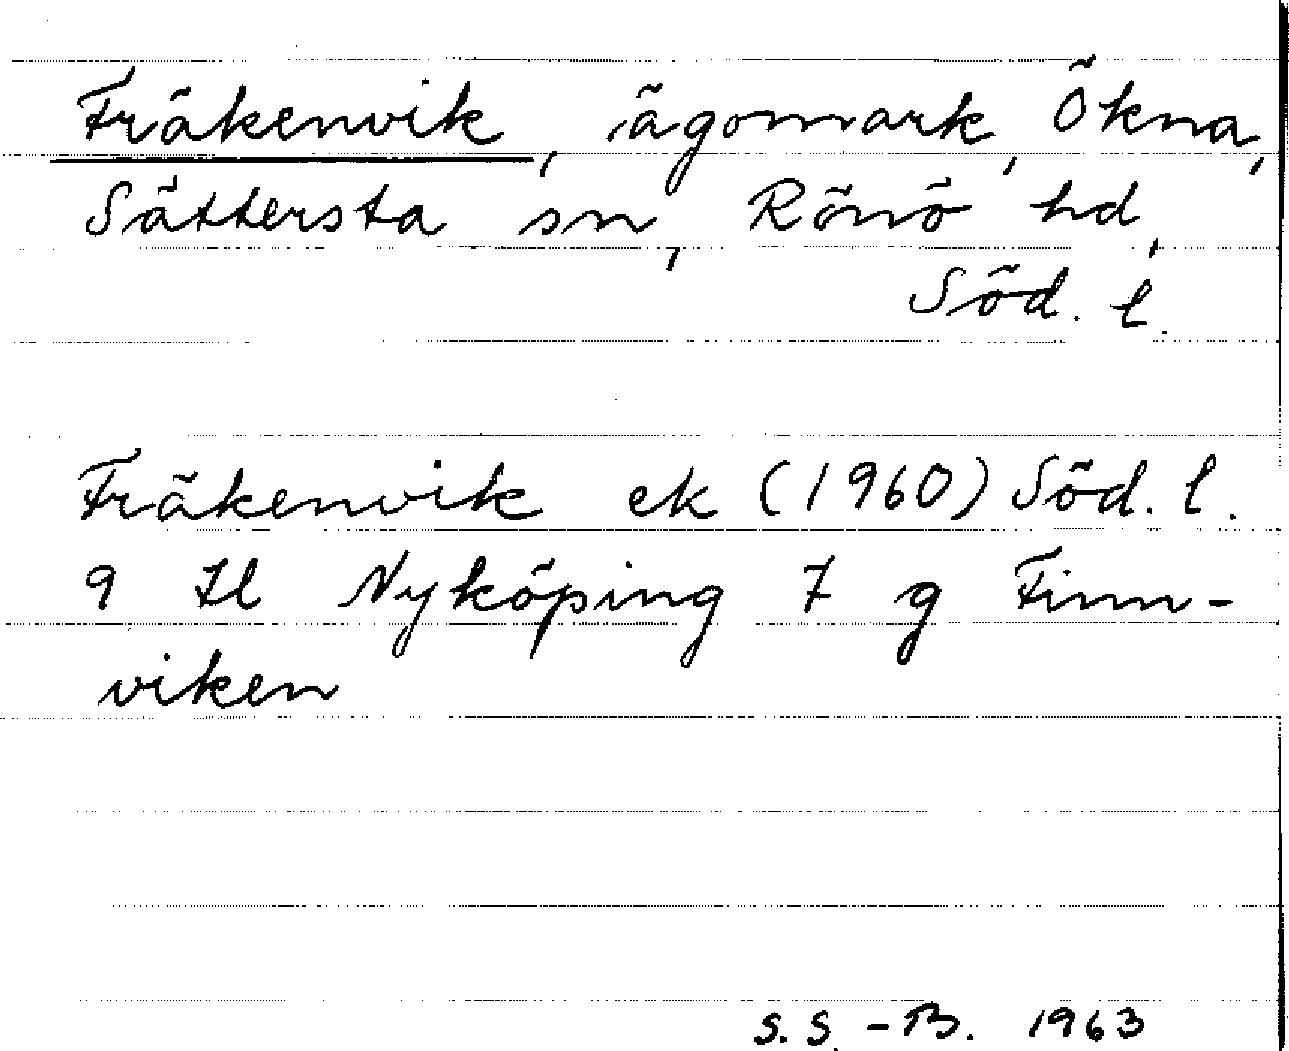 Fräkenvik, ägomark, Ökna,
Sättersta sn, Rönö hd,
Söd. l.
Fräkenvik ek (1960) Söd. l.
9 Il Nyköping 7 g Finn-
viken
S.S.-B. 1963